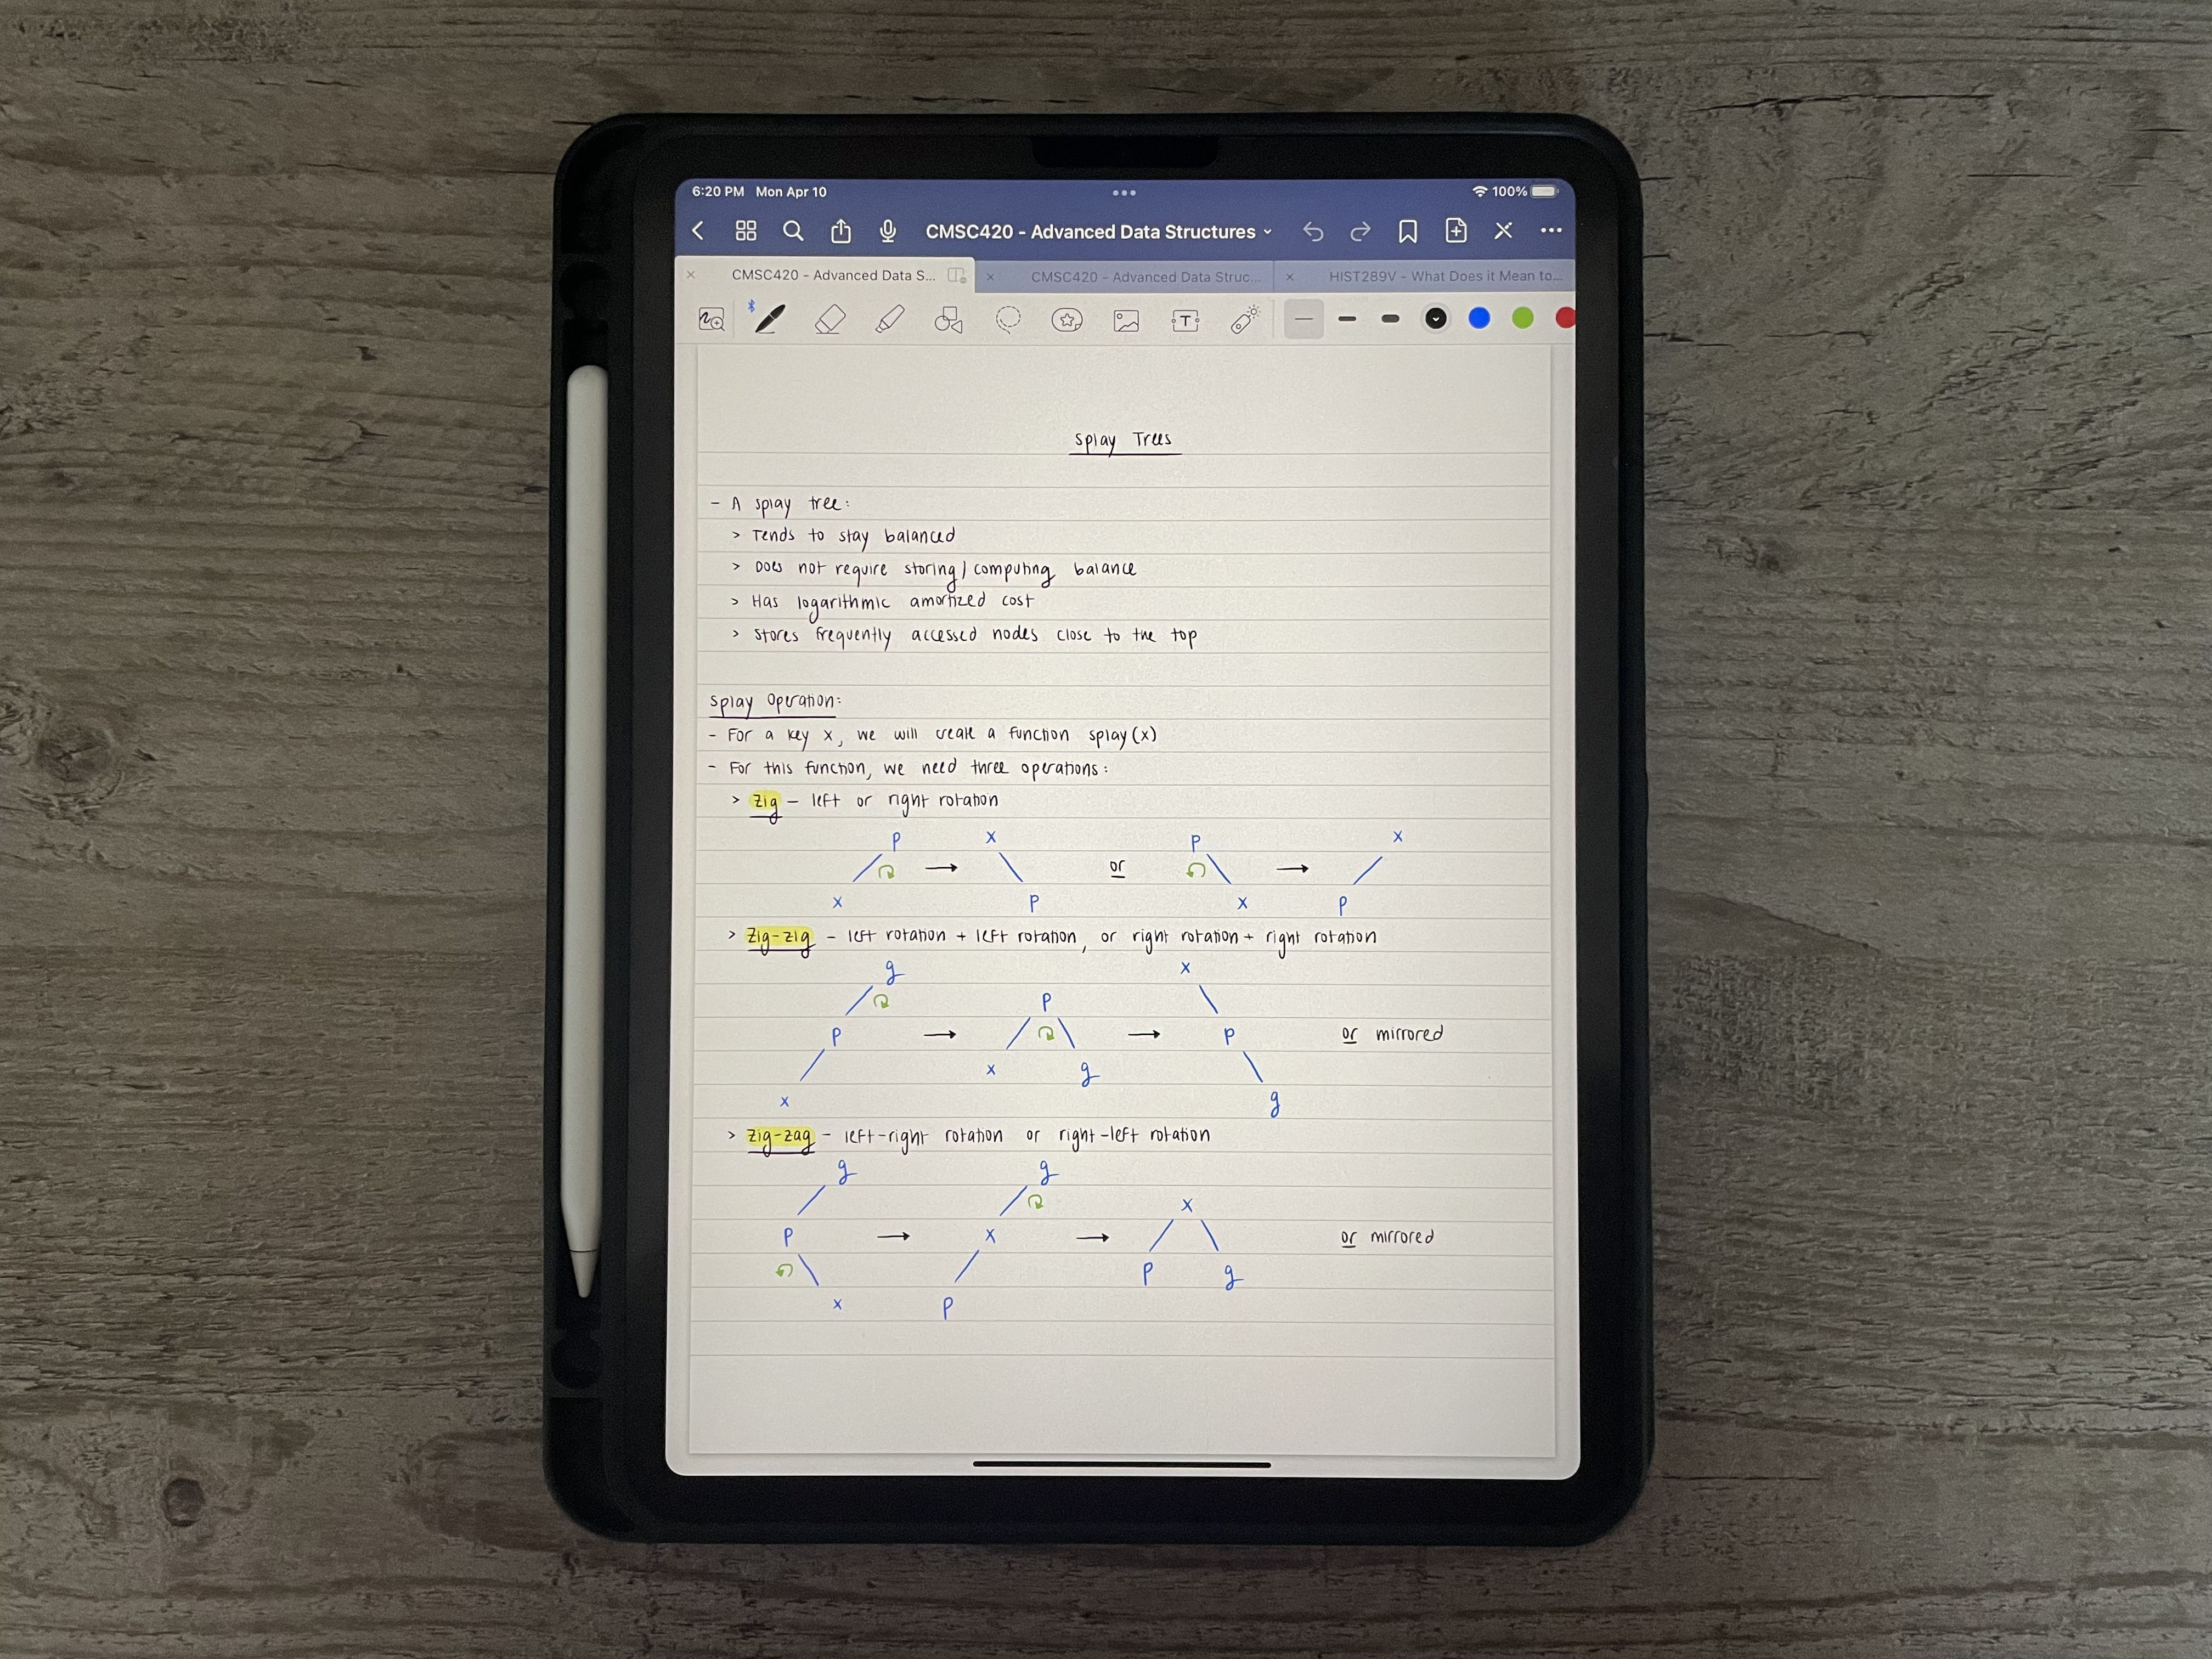 6:20 PM Mon Apr 10
100%
CMSC420 - Advanced Data Structures
CMSC420 - Advanced Data S...
CMSC420 - Advanced Data Struc...
HIST289V - What Does it Mean to...
T
Splay Trees
- A splay tree:
> Tends to stay balanced
> Does not require storing/computing balance
> Has logarithmic amortized cost
> Stores frequently accessed nodes close to the top
Splay Operation:
- For a key x, we will create a function splay(x)
- For this function, we need three operations:
> Zig - left or right rotation
P → x or P → x
x P x P
> Zig-zig - left rotation + left rotation, or right rotation + right rotation
g x
P
P → → P or mirrored
x g
x g
> Zig-zag - left-right rotation or right-left rotation
g g
x
P → x → or mirrored
P g
x P